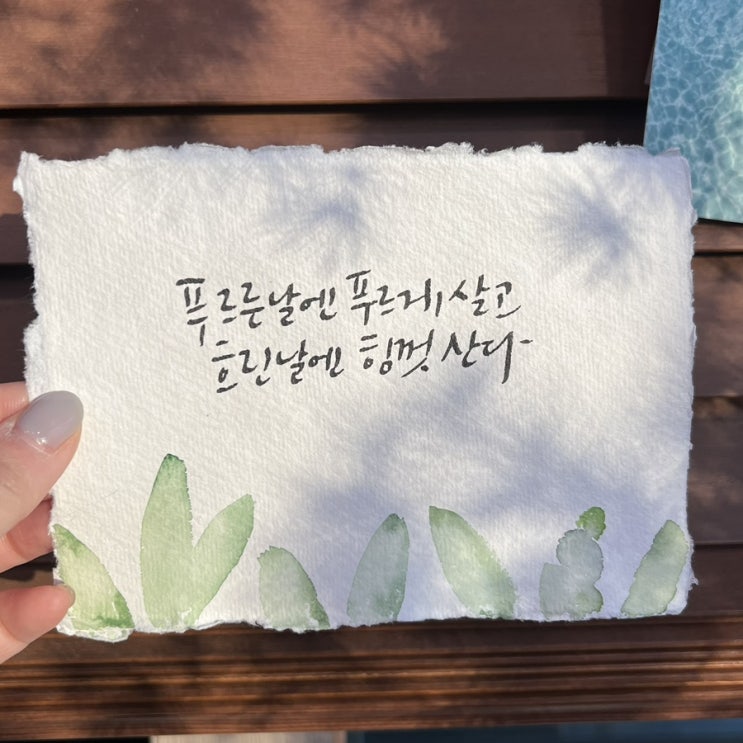 푸르른날에 푸르게 살고
흐린날에 힘껏 산다